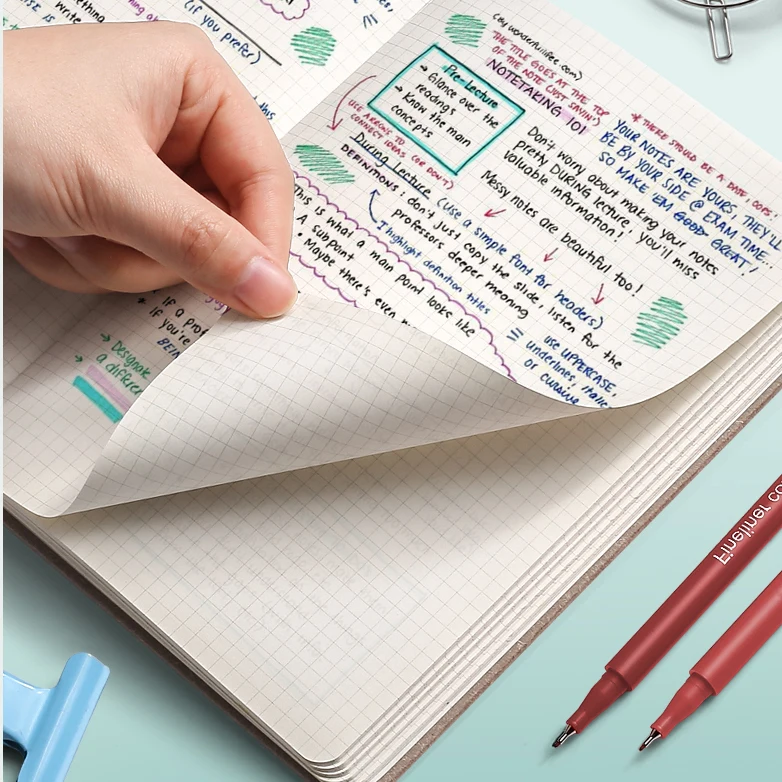 write
(if you prefer)
this
(by wonderfullifee.com)
THE TITLE GOES AT THE TOP
OF THE NOTE (JUST SAYIN')
NOTETAKING 101
* THERE SHOULD BE A DATE, OOPS!
Pre-Lecture
→ Glance over the
readings
→ Know the main
concepts
YOUR NOTES ARE YOURS, THEY'LL
BE BY YOUR SIDE @ EXAM TIME..
SO MAKE 'EM GOOD GREAT!
Don't worry about making your notes
pretty DURING lecture, you'll miss
valuable information!
Messy notes are beautiful too!
USE ARROWS TO
CONNECT IDEAS (OR DON'T)
During Lecture (use a simple font for headers)
DEFINITIONS: don't just copy the slide, listen for the
professors deeper meaning
I highlight definition titles
This is what a main point looks like
• A subpoint
• Maybe there's even
use UPPERCASE,
underlines, italic
or cursive
If a prof
If you're
→ Designate
→ a differen
Fineliner co